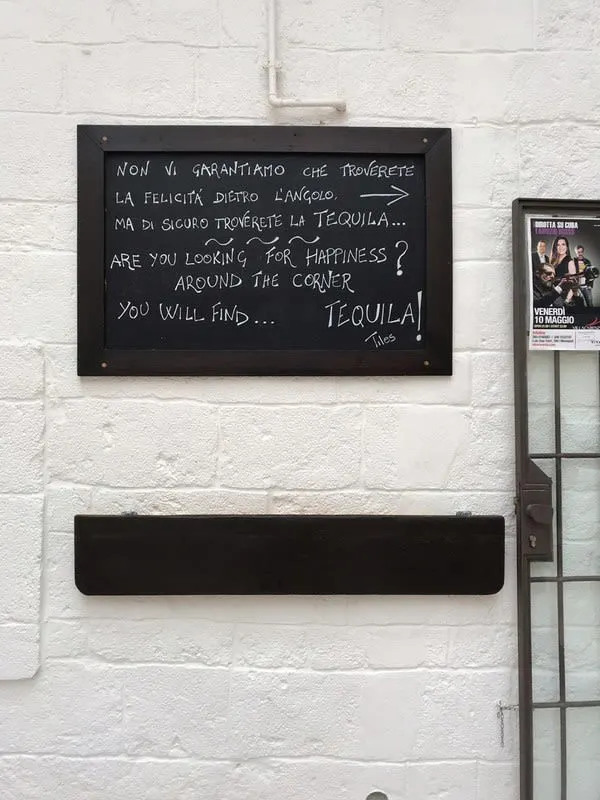 NON VI GARANTIAMO CHE TROVERETE
LA FELICITÁ DIETRO L'ANGOLO.
MA DI SICURO TROVERETE LA TEQUILA...
ARE YOU LOOKING FOR HAPPINESS?
AROUND THE CORNER
YOU WILL FIND... TEQUILA!
Tiles
DIROTTA SU CUBA
VENERDÌ
10 MAGGIO